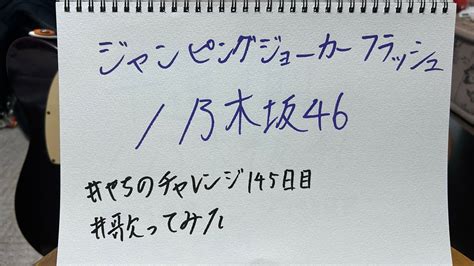 ジャンピングジョーカーフラッシュ
/乃木坂46
#やちのチャレンジ145日目
#歌ってみた